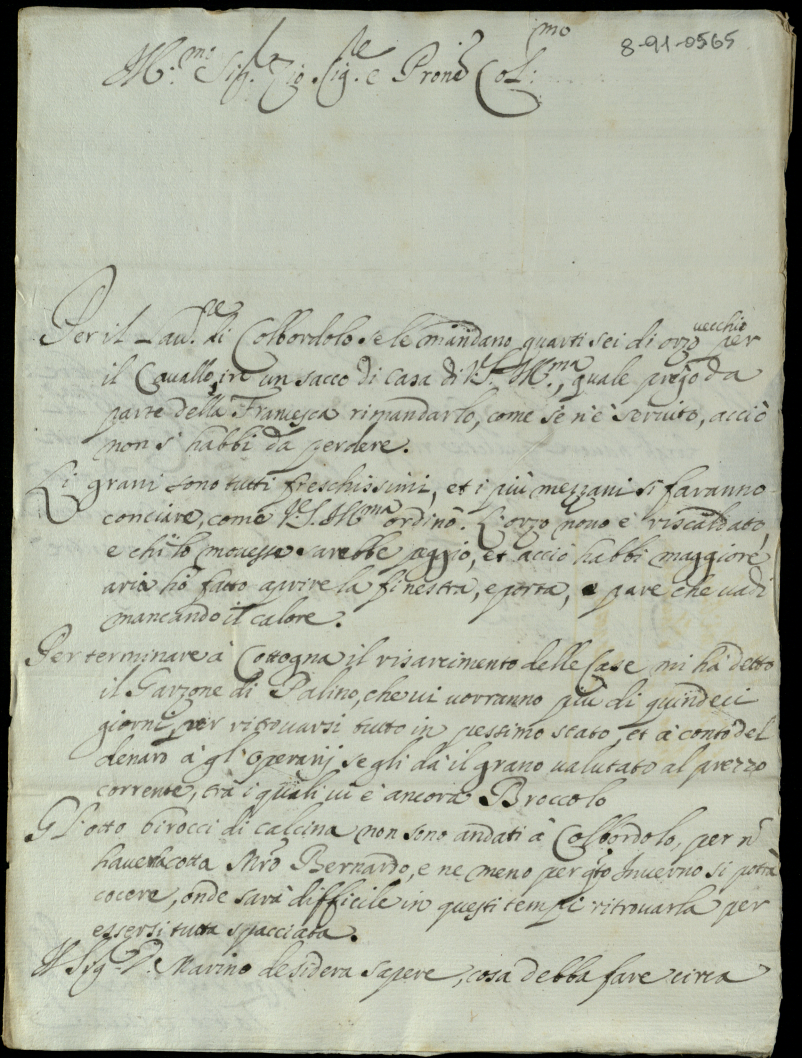 8-91-0565
Ill.mo Sig.r Zio Sig.re e Prone Col.mo
Per il Lau.re di Colbordolo se le mandano quarti sei di orzo vecchio per
il Cavallo, in un sacco di casa di V.S. Ill.ma, quale prego da
parte della Francesca rimandarlo, come se n'è servito, acciò
non s'habbi da perdere.
Li grani sono tutti freschissimi, et i più mezzani si faranno
conciare, come V.S. Ill.ma ordinò. L'orzo novo è riscaldato,
e chi lo movesse sarebbe peggio, et acciò habbi maggiore
aria hò fatto aprire la finestra, e porta, e pare che vadi
mancando il calore.
Per terminare à Cottogna il risarcimento delle Case mi hà detto
il Garzone di Palino, che vi vorranno più di quindeci
giorni, per ritrovarsi tutto in pessimo stato, et à conto del
denaro à gl'Operarij se gli dà il grano valutato al prezzo
corrente, trà i quali vi è ancora Broccolo
Gl'otto birocci di calcina non sono andati à Colbordolo, per nō
haverla cotta Mrō Bernardo, e ne meno per q̄to Inverno si potrà
cocere, onde sarà difficile in questi tempi ritrovarla per
essersi tutta spacciata.
Il Sig.r D. Marino desidera sapere, cosa debba fare circa